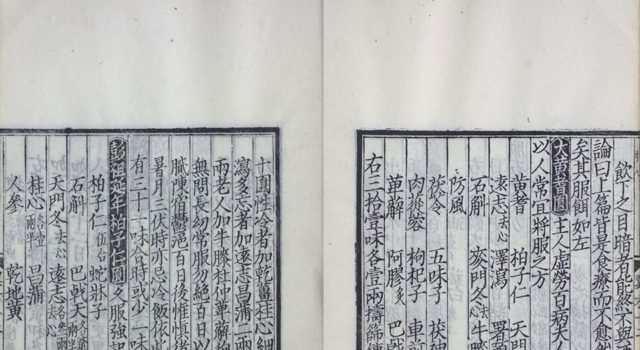 飲下之目暗者能終久與
論曰上篇皆是食療而不愈然
矣其服餌如左
大黃蓍圓主人虛勞百病夫人
以人常宜將服之方
黃蓍 柏子仁 天門
遠志去心 澤瀉
石斛 麥門冬去心 牛膝
防風
茯苓 五味子
肉蓯蓉 枸杞子 車
萆薢 阿膠炙 巴
右三拾壹味各壹兩擣篩
十圓性冷者加乾薑桂心細
瀉多忘者加遠志昌蒲二兩
兩老人加牛膝杜仲萆薢
無問長幼常服勿絕百日以
百日後惟慎
暑月三伏時亦忌冷飯依此
有三十一味合時或少一味
彭祖延年柏子仁圓久服強記
柏子仁伍合 蛇牀子
石斛 巴戟天
天門冬去心 遠志去心
桂心 昌蒲
人參 乾地黃